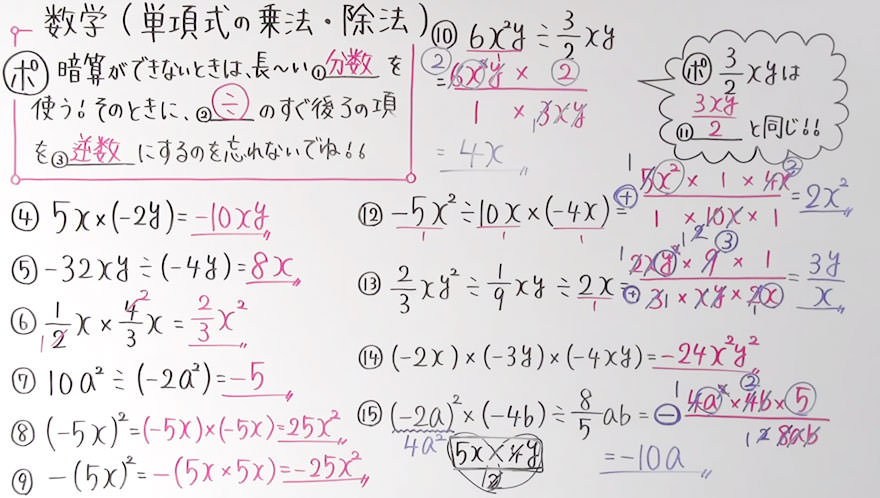 数学（単項式の乗法・除法）
ポ 暗算ができないときは、長〜い①分数を
使う！そのときに、②÷のすぐ後ろの項
を③逆数にするのを忘れないでね！！
④ 5x×(-2y)=-10xy
⑤ -32xy÷(-4y)=8x
⑥ 1/2x×4/3x=2/3x²
⑦ 10a²÷(-2a²)=-5
⑧ (-5x)²=(-5x)×(-5x)=25x²
⑨ -(5x)²=-(5x×5x)=-25x²
⑩ 6x²y÷3/2xy
=6x²y×2/1×3xy
=4x
ポ 3/2xyは
⑪3xy/2と同じ!!
⑫ -5x²÷10x×(-4x)=+5x²×1×4x/1×10x×1=2x²
⑬ 2/3xy²÷1/9xy÷2x=+2xy²×9×1/3×xy×2x=3y/x
⑭ (-2x)×(-3y)×(-4xy)=-24x²y²
⑮ (-2a)²×(-4b)÷8/5ab=-4a²×4b×5/8ab
4a²
=-10a